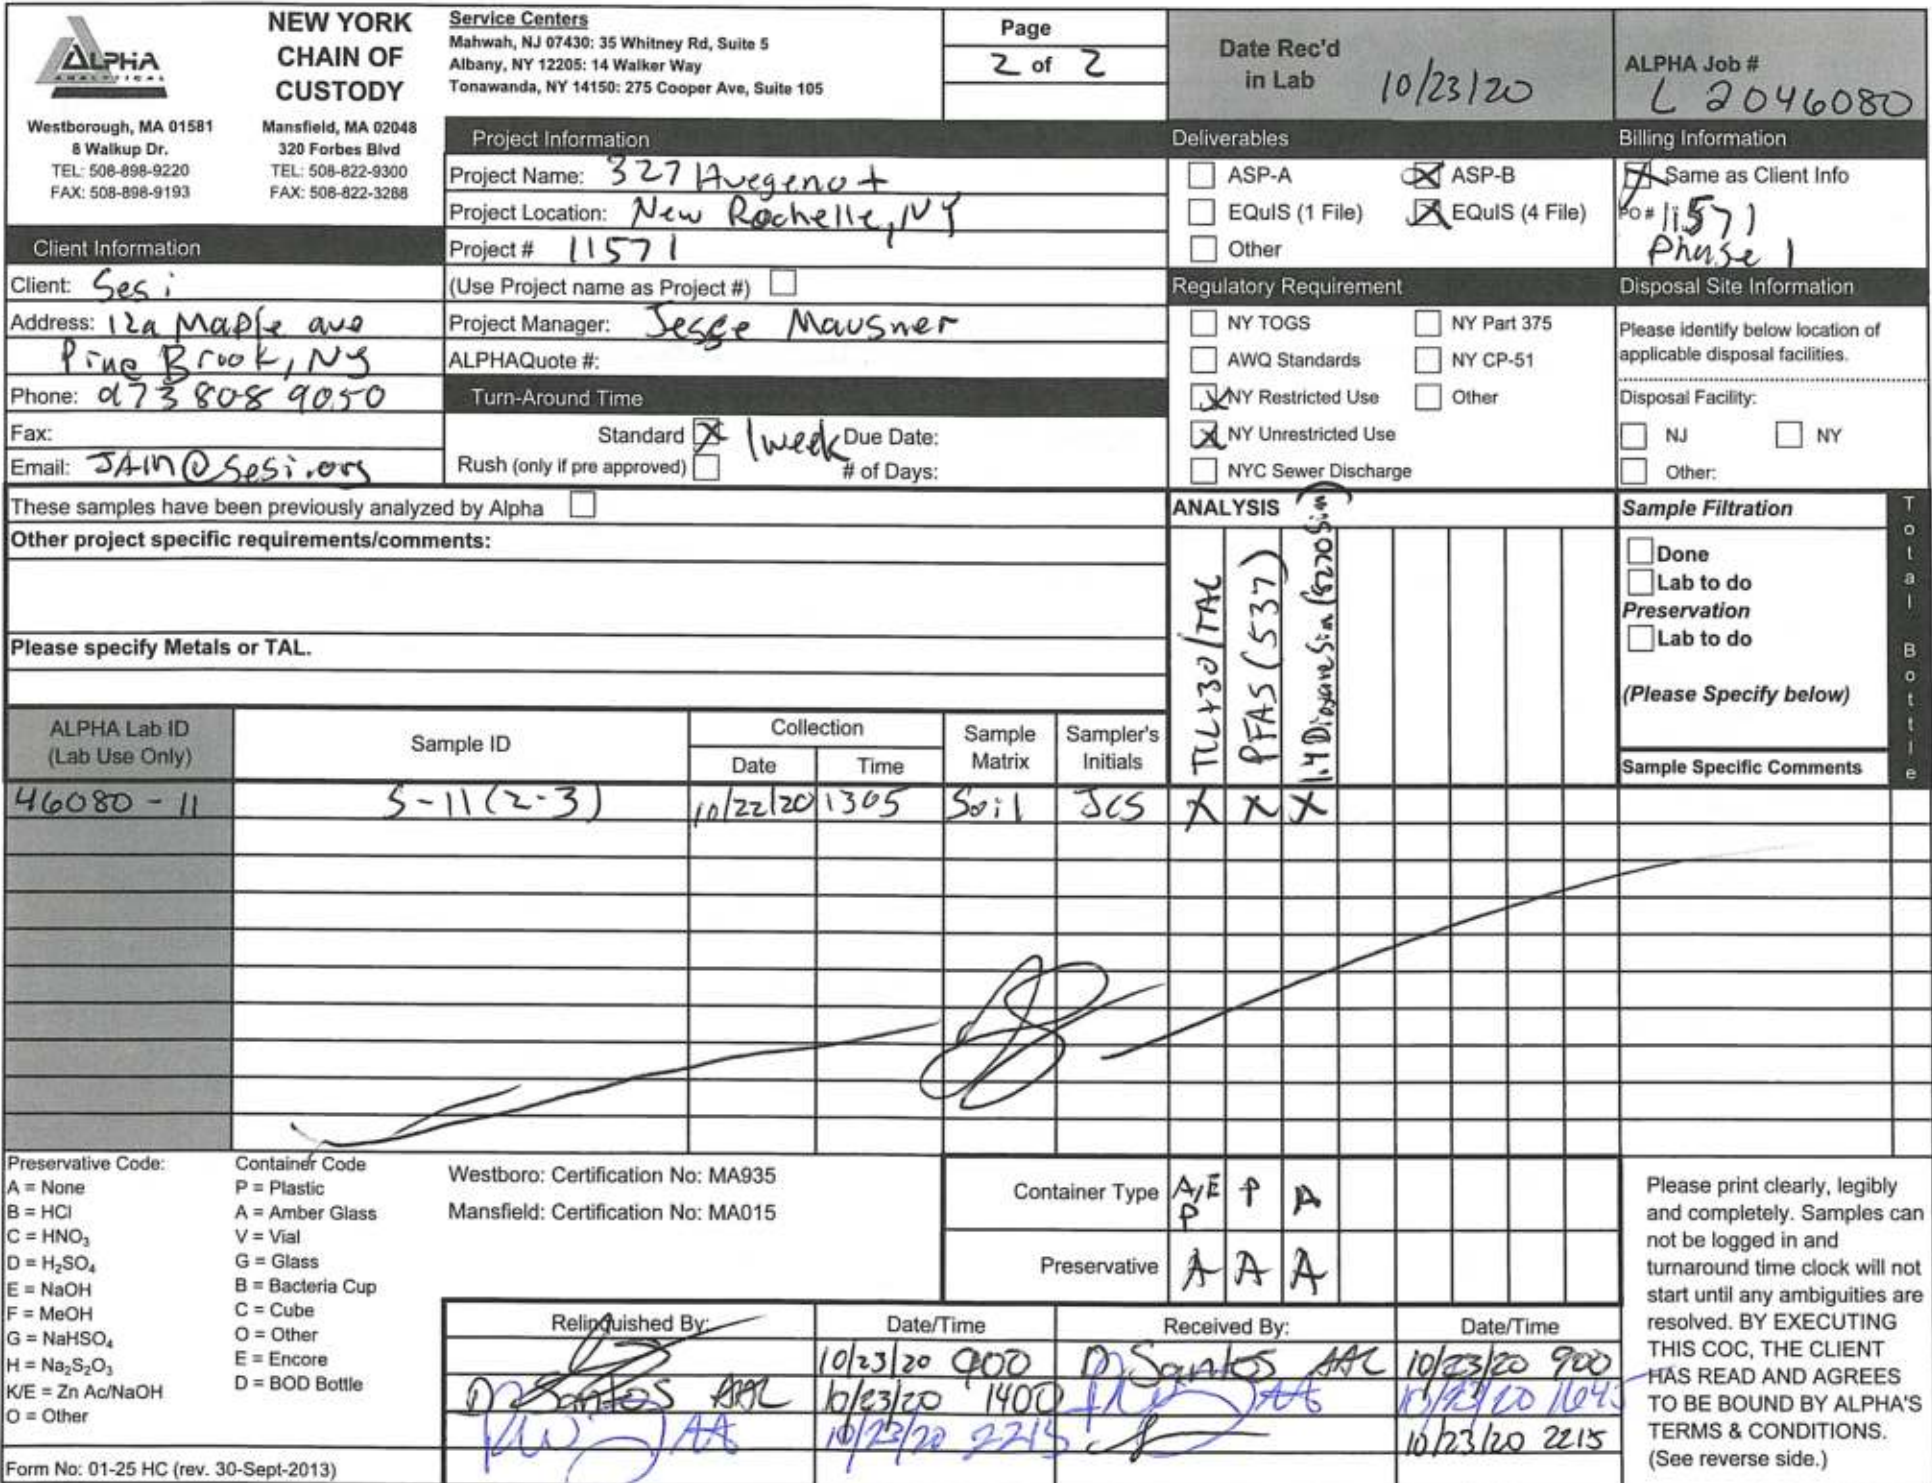 ALPHA
ANALYTICAL
Westborough, MA 01581
8 Walkup Dr.
TEL: 508-898-9220
FAX: 508-898-9193
NEW YORK
CHAIN OF
CUSTODY
Mansfield, MA 02048
320 Forbes Blvd
TEL: 508-822-9300
FAX: 508-822-3288
Service Centers
Mahwah, NJ 07430: 35 Whitney Rd, Suite 5
Albany, NY 12205: 14 Walker Way
Tonawanda, NY 14150: 275 Cooper Ave, Suite 105
Page
2 of 2
Date Rec'd
in Lab 10/23/20
ALPHA Job #
L2046080
Client Information
Client: Sesi
Address: 12a Maple ave
Pine Brook, NJ
Phone: 973 808 9050
Fax:
Email: JAM@Sesi.org
Project Information
Project Name: 327 Huegenot
Project Location: New Rochelle, NY
Project # 11571
(Use Project name as Project #)
Project Manager: Jesse Mausner
ALPHAQuote #:
Turn-Around Time
Standard X 1 week Due Date:
Rush (only if pre approved) # of Days:
Deliverables
ASP-A X ASP-B
EQuIS (1 File) X EQuIS (4 File)
Other
Regulatory Requirement
NY TOGS NY Part 375
AWQ Standards NY CP-51
X NY Restricted Use Other
X NY Unrestricted Use
NYC Sewer Discharge
Billing Information
X Same as Client Info
PO # 11571
Phase 1
Disposal Site Information
Please identify below location of
applicable disposal facilities.
Disposal Facility:
NJ NY
Other:
These samples have been previously analyzed by Alpha
Other project specific requirements/comments:
Please specify Metals or TAL.
ANALYSIS
TCL+30/TAL
PFAS (537)
1,4 Dioxane Sim (8270 Sim)
Sample Filtration
Done
Lab to do
Preservation
Lab to do
(Please Specify below)
Sample Specific Comments
Total Bottle
ALPHA Lab ID
(Lab Use Only)
Sample ID
Collection
Date Time
Sample
Matrix
Sampler's
Initials
46080 - 11 S-11 (2-3) 10/22/20 1305 Soil JCS X X X
Preservative Code:
A = None
B = HCl
C = HNO3
D = H2SO4
E = NaOH
F = MeOH
G = NaHSO4
H = Na2S2O3
K/E = Zn Ac/NaOH
O = Other
Container Code
P = Plastic
A = Amber Glass
V = Vial
G = Glass
B = Bacteria Cup
C = Cube
O = Other
E = Encore
D = BOD Bottle
Westboro: Certification No: MA935
Mansfield: Certification No: MA015
Container Type A/E P P A
Preservative A A A
Relinquished By: Date/Time Received By: Date/Time
10/23/20 900 D Santos AAL 10/23/20 900
D Santos AAL 10/23/20 1400 AA 10/23/20 1645
AA 10/23/20 2215 10/23/20 2215
Please print clearly, legibly
and completely. Samples can
not be logged in and
turnaround time clock will not
start until any ambiguities are
resolved. BY EXECUTING
THIS COC, THE CLIENT
HAS READ AND AGREES
TO BE BOUND BY ALPHA'S
TERMS & CONDITIONS.
(See reverse side.)
Form No: 01-25 HC (rev. 30-Sept-2013)